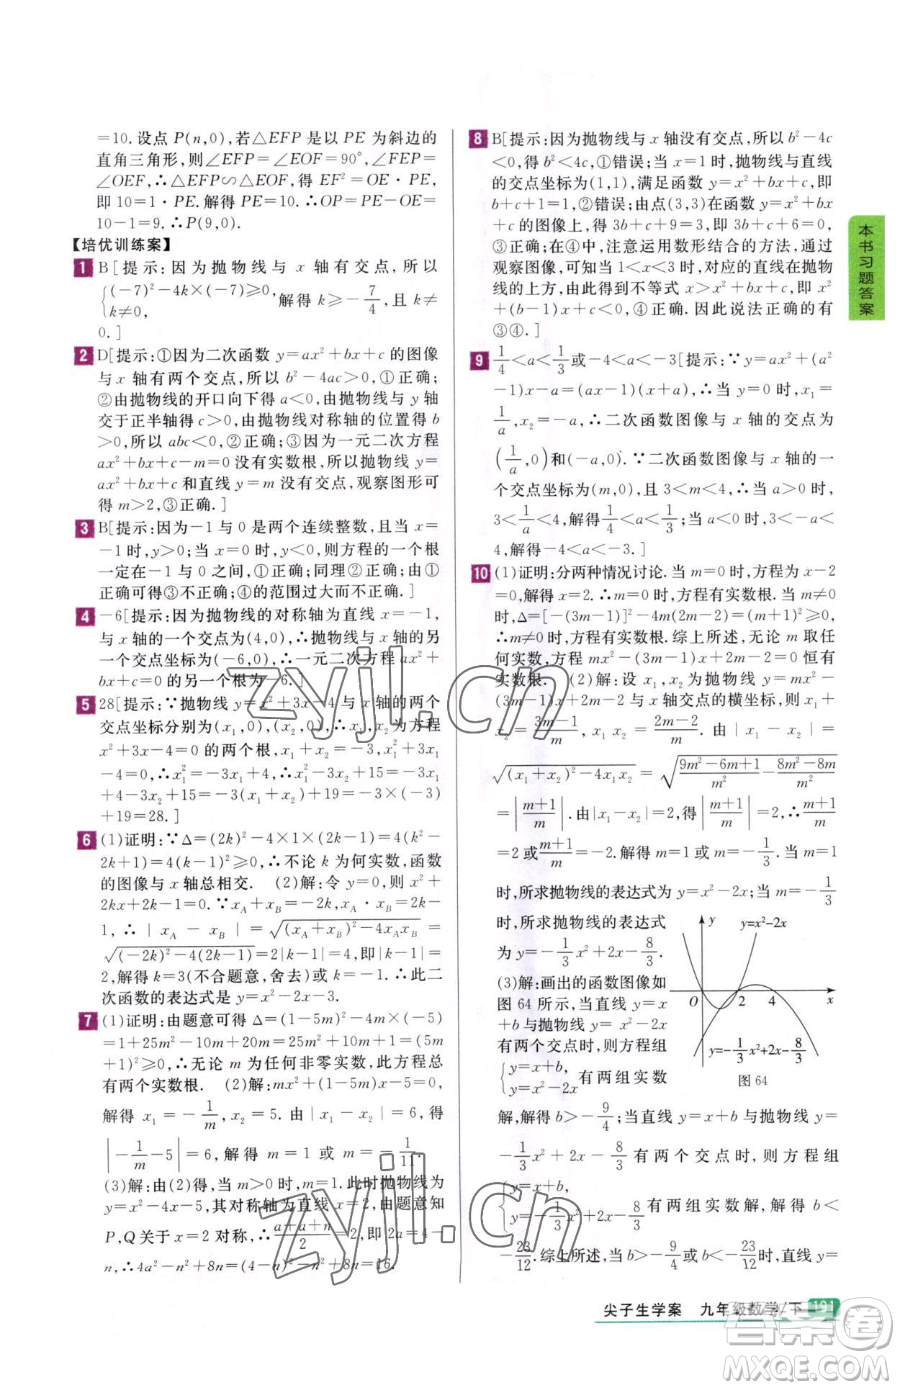 =10. 设点 P(n,0),若△EFP 是以 PE 为斜边的
直角三角形,则∠EFP=∠EOF=90°,∠FEP=
∠OEF,∴△EFP∽△EOF,得 EF²=OE·PE,
即 10=1·PE.解得 PE=10.∴OP=PE-OE=
10-1=9.∴P(9,0).
【培优训练案】
1 B[提示:因为抛物线与 x 轴有交点,所以
{(-7)²-4k×(-7)≥0, k≠0, 解得 k≥-7/4,且 k≠
0.]
2 D[提示:①因为二次函数 y=ax²+bx+c 的图像
与 x 轴有两个交点,所以 b²-4ac>0,①正确;
②由抛物线的开口向下得 a<0,由抛物线与 y 轴
交于正半轴得 c>0,由抛物线对称轴的位置得 b
>0,所以 abc<0,②正确;③因为一元二次方程
ax²+bx+c-m=0 没有实数根,所以抛物线 y=
ax²+bx+c 和直线 y=m 没有交点,观察图形可
得 m>2,③正确.]
3 B[提示:因为-1 与 0 是两个连续整数,且当 x=
-1时,y>0;当 x=0 时,y<0,则方程的一个根
一定在-1 与 0 之间,①正确;同理②正确;由①
正确可得③不正确;④的范围过大而不正确.]
4 -6[提示:∵抛物线的对称轴为直线 x=-1,
与 x 轴的一个交点为(4,0),∴抛物线与 x 轴的另
一个交点坐标为(-6,0).∴一元二次方程 ax²+
bx+c=0 的另一个根为-6.]
5 28[提示:∵抛物线 y=x²+3x-4 与 x 轴的两个
交点坐标分别为(x₁,0),(x₂,0),∴x₁,x₂为方程
x²+3x-4=0 的两个根,x₁+x₂=-3,x₁²+3x₁
-4=0.∴x₁²=-3x₁+4.∴x₁²-3x₂+15=-3x₁
+4-3x₂+15=-3(x₁+x₂)+19=-3×(-3)
+19=28.]
6 (1)证明:∵Δ=(2k)²-4×1×(2k-1)=4(k²-
2k+1)=4(k-1)²≥0,∴不论 k 为何实数,函数
的图像与 x 轴总相交. (2)解:令 y=0,则 x²+
2kx+2k-1=0.∵x_A+x_B=-2k,x_A·x_B=2k-
1,∴|x_A-x_B|=√((x_A+x_B)²-4x_Ax_B)=
√((-2k)²-4(2k-1))=2|k-1|=4,即|k-1|=
2,解得 k=3(不合题意,舍去)或 k=-1.∴此二
次函数的表达式是 y=x²-2x-3.
7 (1)证明:由题意可得 Δ=(1-5m)²-4m×(-5)
=1+25m²-10m+20m=25m²+10m+1=(5m
+1)²≥0,∴无论 m 为任何非零实数,此方程总
有两个实数根. (2)解:mx²+(1-5m)x-5=0,
解得 x₁=-1/m,x₂=5.由|x₁-x₂|=6,得
|-1/m-5|=6,解得 m=1 或 m=-1/11.
(3)解:由(2)得,当 m>0 时,m=1.此时抛物线为
y=x²-4x-5,其对称轴为直线 x=2,由题意知
P,Q关于 x=2 对称,∴(a+a+n)/2=2,即 2a=4-
n,∴4a²-n²+8n=(4-n)²-n²+8n=16.
8 B[提示:因为抛物线与 x 轴没有交点,所以 b²-4c
<0,得 b²<4c,①错误;当 x=1时,抛物线与直线
的交点坐标为(1,1),满足函数 y=x²+bx+c,即
b+c+1=1,②错误;由点(3,3)在函数 y=x²+bx
+c 的图像上,得 3b+c+9=3,即 3b+c+6=0,
③正确;在④中,注意运用数形结合的方法,通过
观察图像,可得当 1<x<3时,对应的直线在抛物
线的上方,因此得到不等式 x>x²+bx+c,即 x²
+(b-1)x+c<0,④正确.因此说法正确的有
③④.]
9 1/4<a<1/3或-4<a<-3[提示:∵y=ax²+(a²
-1)x-a=(ax-1)(x+a),∴当 y=0时,x₁=
1/a,x₂=-a,∴二次函数图像与 x 轴的交点为
(1/a,0)和(-a,0).∵二次函数图像与 x 轴的一
个交点坐标为(m,0),∴当 3<m<4时,
3<1/a<4,解得1/4<a<1/3;当a<0时,3<-a<
4,解得-4<a<-3.]
10 (1)证明:分两种情况讨论.当 m=0时,方程为 x-2
=0,∴x=2.∴m=0时,方程有实数根.当 m≠0
时,Δ=[-(3m-1)]²-4m(2m-2)=(m+1)²≥0,
∴m≠0时,方程有实数根.综上所述,无论 m 取任
何实数,方程 mx²-(3m-1)x+2m-2=0 恒有
实数根. (2)解:设 x₁,x₂为抛物线 y=mx²-
(3m-1)x+2m-2与 x 轴交点的横坐标,则 x₁
+x₂=(3m-1)/m,x₁x₂=(2m-2)/m.由|x₁-x₂|=
√((x₁+x₂)²-4x₁x₂)=√((9m²-6m+1)/m²-(8m²-8m)/m²)
=|(m+1)/m|.由|x₁-x₂|=2,得|(m+1)/m|=2,∴(m+1)/m
=2或(m+1)/m=-2.∴m=1 或 m=-1/3.∴当 m=1
时,所求抛物线的表达式为 y=x²-2x;当 m=-1/3
时,所求抛物线的表达式
为 y=-1/3x²+2x-8/3.
(3)解:画出的函数图像如
图 64 所示,当直线 y=x
+b与抛物线 y=x²-2x
有两个交点时,则方程组
{y=x+b, y=x²-2x 有两组实数
y
y=x²-2x
O 2 4 x
y=-1/3x²+2x-8/3
图 64
解,解得 b>-9/4;当直线 y=x+b 与抛物线 y=
-1/3x²+2x-8/3有两个交点时,则方程组
{y=x+b, y=-1/3x²+2x-8/3 有两组实数解,解得 b<
-23/12.综上所述,当 b>-9/4或 b<-23/12时,直线 y=
本书习题答案
尖子生学案 九年级数学/下 191
zyjl.cn
zyjl.cn
答案圈
MXQE.COM